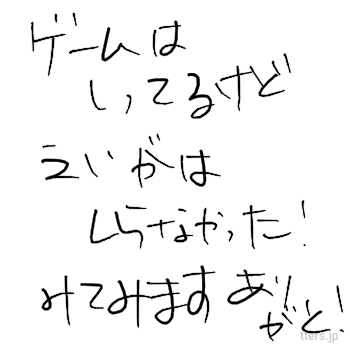 ゲームは
しってるけど
えいがは
しらなかった!
みてみます あり
がと!
tters.jp